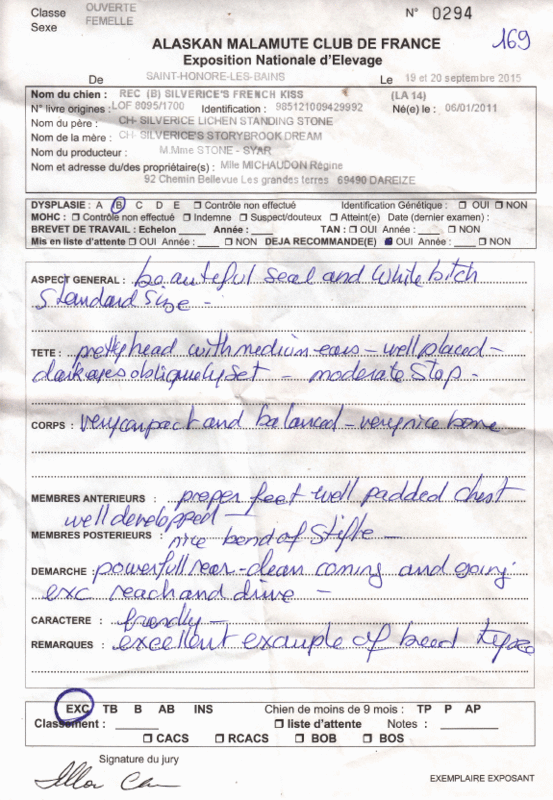 Classe OUVERTE
Sexe FEMELLE
N° 0294
169
ALASKAN MALAMUTE CLUB DE FRANCE
Exposition Nationale d'Elevage
De SAINT-HONORE-LES-BAINS Le 19 et 20 septembre 2015
Nom du chien : REC (B) SILVERICE'S FRENCH KISS (LA 14)
N° livre origines : LOF 8095/1700 Identification : 985121009429992 Né(e) le : 06/01/2011
Nom du père : CH- SILVERICE LICHEN STANDING STONE
Nom de la mère : CH- SILVERICE'S STORYBROOK DREAM
Nom du producteur : M.Mme STONE - SYAR
Nom et adresse du/des propriétaire(s) : Mlle MICHAUDON Régine
92 Chemin Bellevue Les grandes terres 69490 DAREIZE
DYSPLASIE : A B C D E ☐ Contrôle non effectué Identification Génétique : ☐ OUI ☐ NON
MOHC : ☐ Contrôle non effectué ☐ Indemne ☐ Suspect/douteux ☐ Atteint(e) Date (dernier examen) :
BREVET DE TRAVAIL : Echelon ____ Année : ____ TAN : ☐ OUI ☐ NON
Mis en liste d'attente ☐ OUI Année : ____ ☐ NON DEJA RECOMMANDE(E) ☑ OUI Année : ____ ☐ NON
ASPECT GENERAL : beauteful seal and white bitch
Standard size -
TETE : pretty head with medium ears - well placed -
dark eyes obliquely set - moderate stop -
CORPS : very compact and balanced - very nice bone
MEMBRES ANTERIEURS : proper feet well padded chest
well developped -
MEMBRES POSTERIEURS : nice bend of Stifle -
DEMARCHE : powerfull rear - clean coming and going
exc reach and drive -
CARACTERE : friendly -
REMARQUES : excellent example of breed type
EXC TB B AB INS Chien de moins de 9 mois : TP P AP
Classement : ____ ☐ liste d'attente Notes : ____
☐ CACS ☐ RCACS ☐ BOB ☐ BOS
Signature du jury
EXEMPLAIRE EXPOSANT